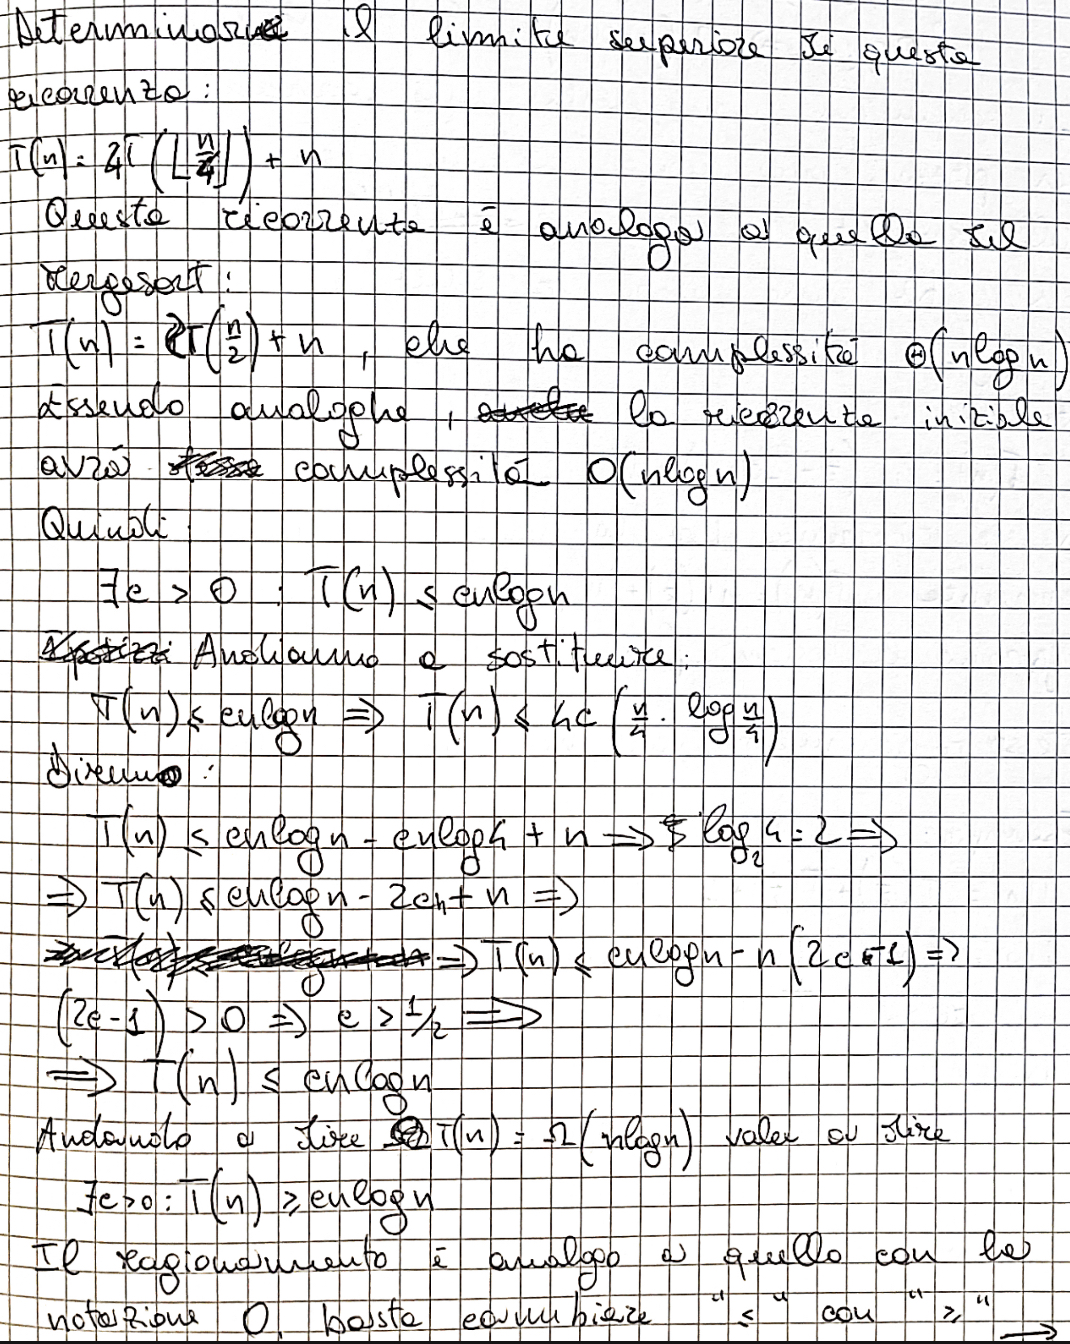 Determinare il limite superiore di questa
ricorrenza:
T(n) = 4T(⌊n/4⌋) + n
Questa ricorrente è analoga a quella del
Mergesort:
T(n) = 2T(n/2) + n, che ha complessità Θ(nlogn)
Essendo analoghe, la ricorrente iniziale
avrà complessità O(nlogn)
Quindi
∃c > 0 : T(n) ≤ cnlogn
Andiamo a sostituire:
T(n) ≤ cnlogn ⇒ T(n) ≤ 4c (n/4 · log n/4)
Diremo:
T(n) ≤ cnlogn - cnlog4 + n ⇒ log₂4 = 2 ⇒
⇒ T(n) ≤ cnlogn - 2cn + n ⇒
⇒ T(n) ≤ cnlogn - n(2c - 1) ⇒
(2c - 1) > 0 ⇒ c > 1/2 ⇒
⇒ T(n) ≤ cnlogn
Andando a dire T(n) = Ω(nlogn) vale a dire
∃c>0 : T(n) ≥ cnlogn
Il ragionamento è analogo a quello con la
notazione O, basta cambiare "≤" con "≥"
→